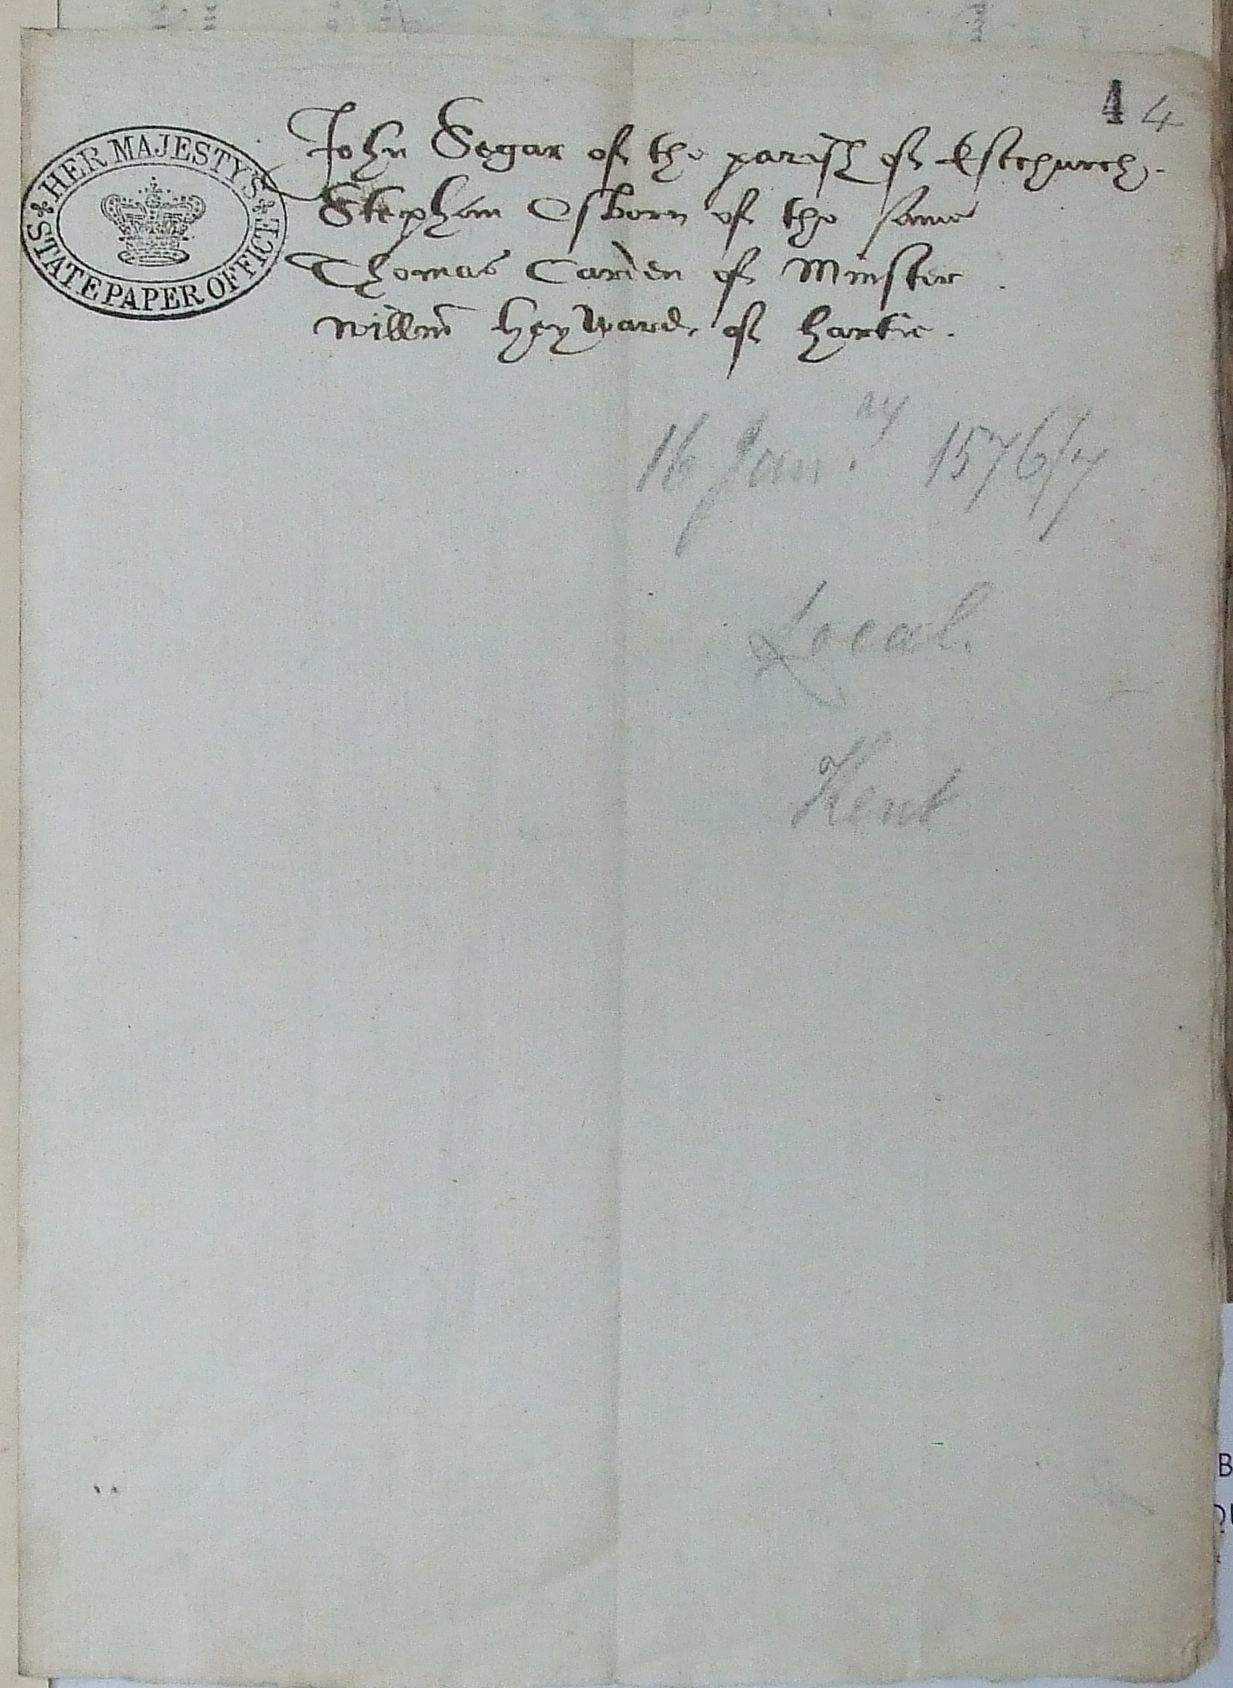 4 4
HER MAJESTY'S STATE PAPER OFFICE
John Segar of the parish of Estchurch.
Stephen Osborn of the same
Thomas Carden of Minster.
Willm Heyward of hartie.
16 Jan.ry 1576/7
Local.
Kent